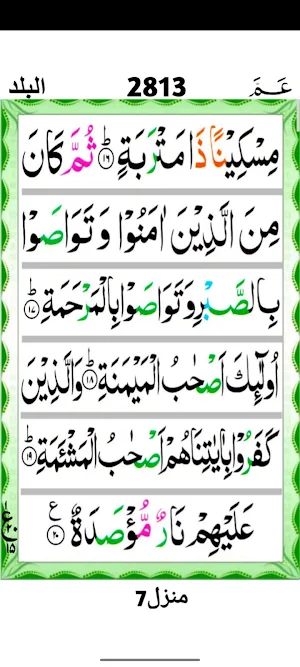 عَمَّ 2813 البلد
مِسْكِيْنًا ذَا مَتْرَبَةٍ ؕ‏﴿۱۶﴾ ثُمَّ كَانَ
مِنَ الَّذِيْنَ اٰمَنُوْا وَ تَوَاصَوْا
بِالصَّبْرِ وَ تَوَاصَوْا بِالْمَرْحَمَةِ ؕ‏﴿۱۷﴾
اُولٰٓئِكَ اَصْحٰبُ الْمَيْمَنَةِ ؕ‏﴿۱۸﴾ وَ الَّذِيْنَ
كَفَرُوْا بِاٰيٰتِنَا هُمْ اَصْحٰبُ الْمَشْئَمَةِ ؕ‏﴿۱۹﴾
عَلَيْهِمْ نَارٌ مُّؤْصَدَةٌ ‏﴿۲۰﴾ ع
منزل7